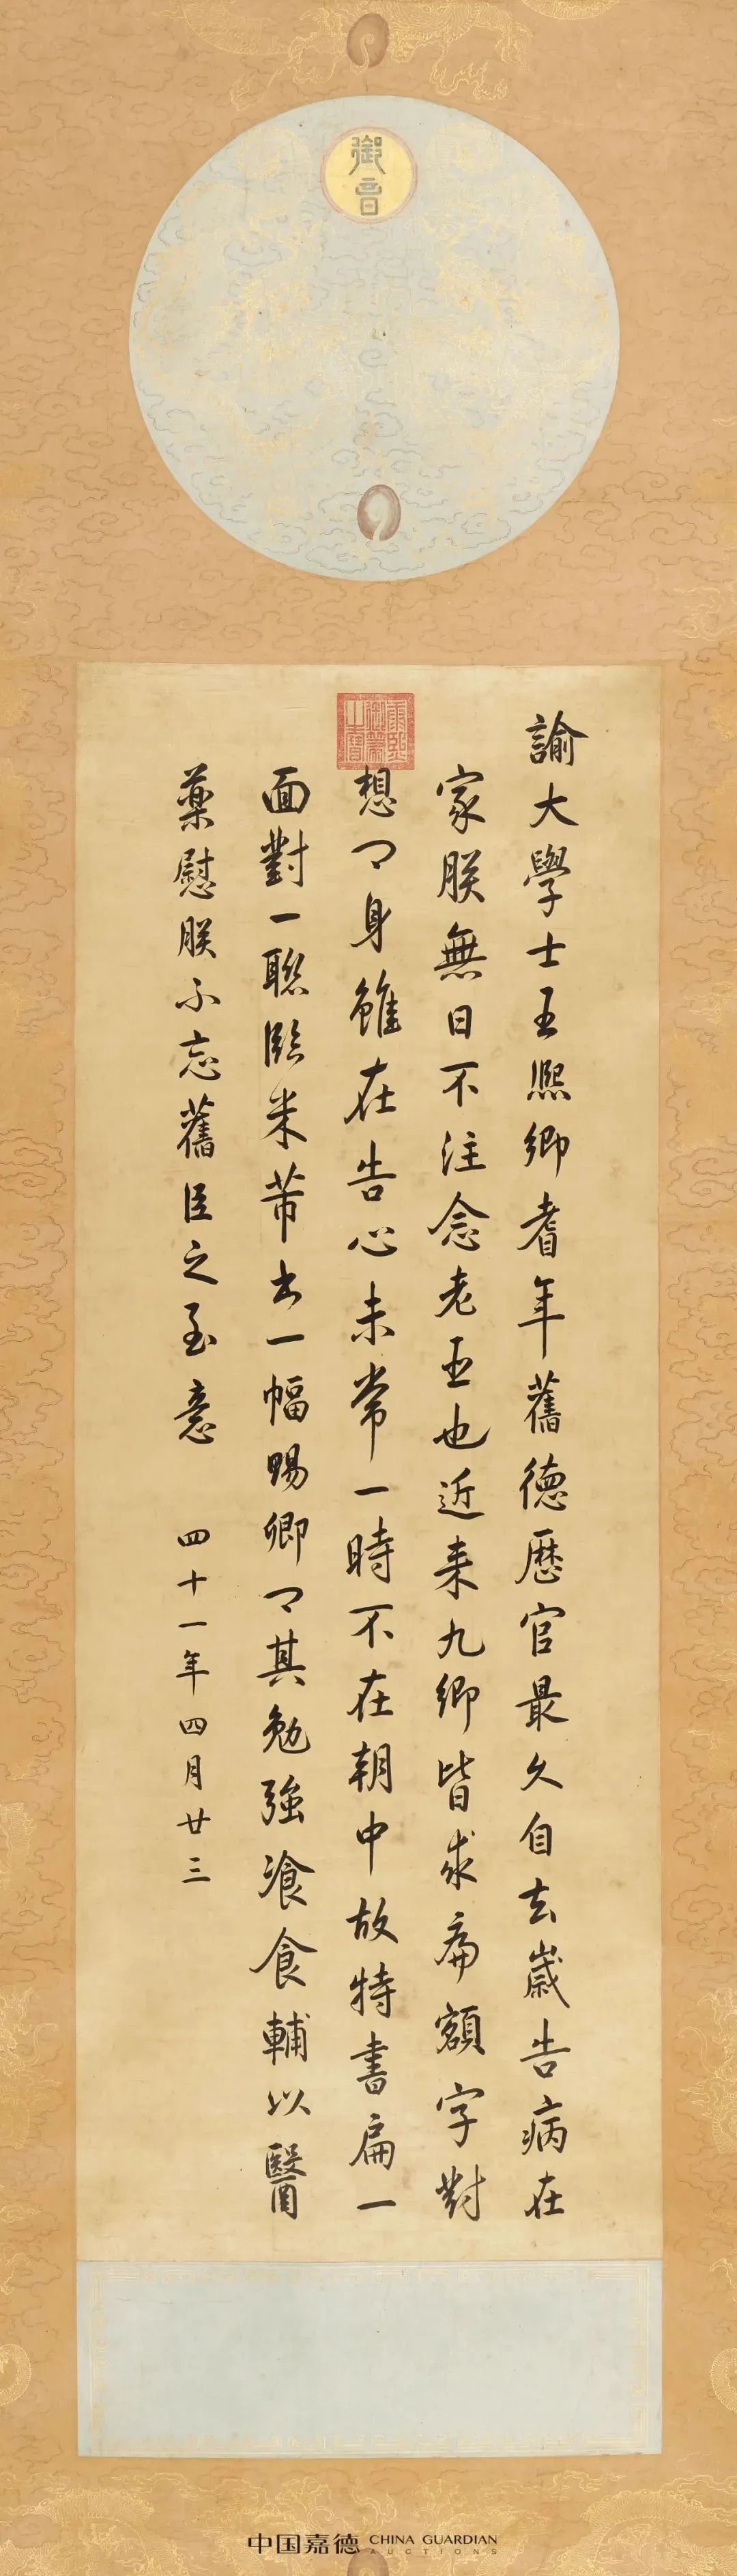 御音
康熙御筆之寶
諭大學士王熙卿耆年舊德歷官最久自去歲告病在
家朕無日不注念老臣也近来九卿皆求扁額字對
想々身雖在告心未常一時不在朝中故特書扁一
面對一聯臨米芾书一幅賜卿々其勉強飡食輔以醫
藥慰朕不忘舊臣之至意
四十一年四月廿三
中国嘉德 CHINA GUARDIAN
AUCTIONS